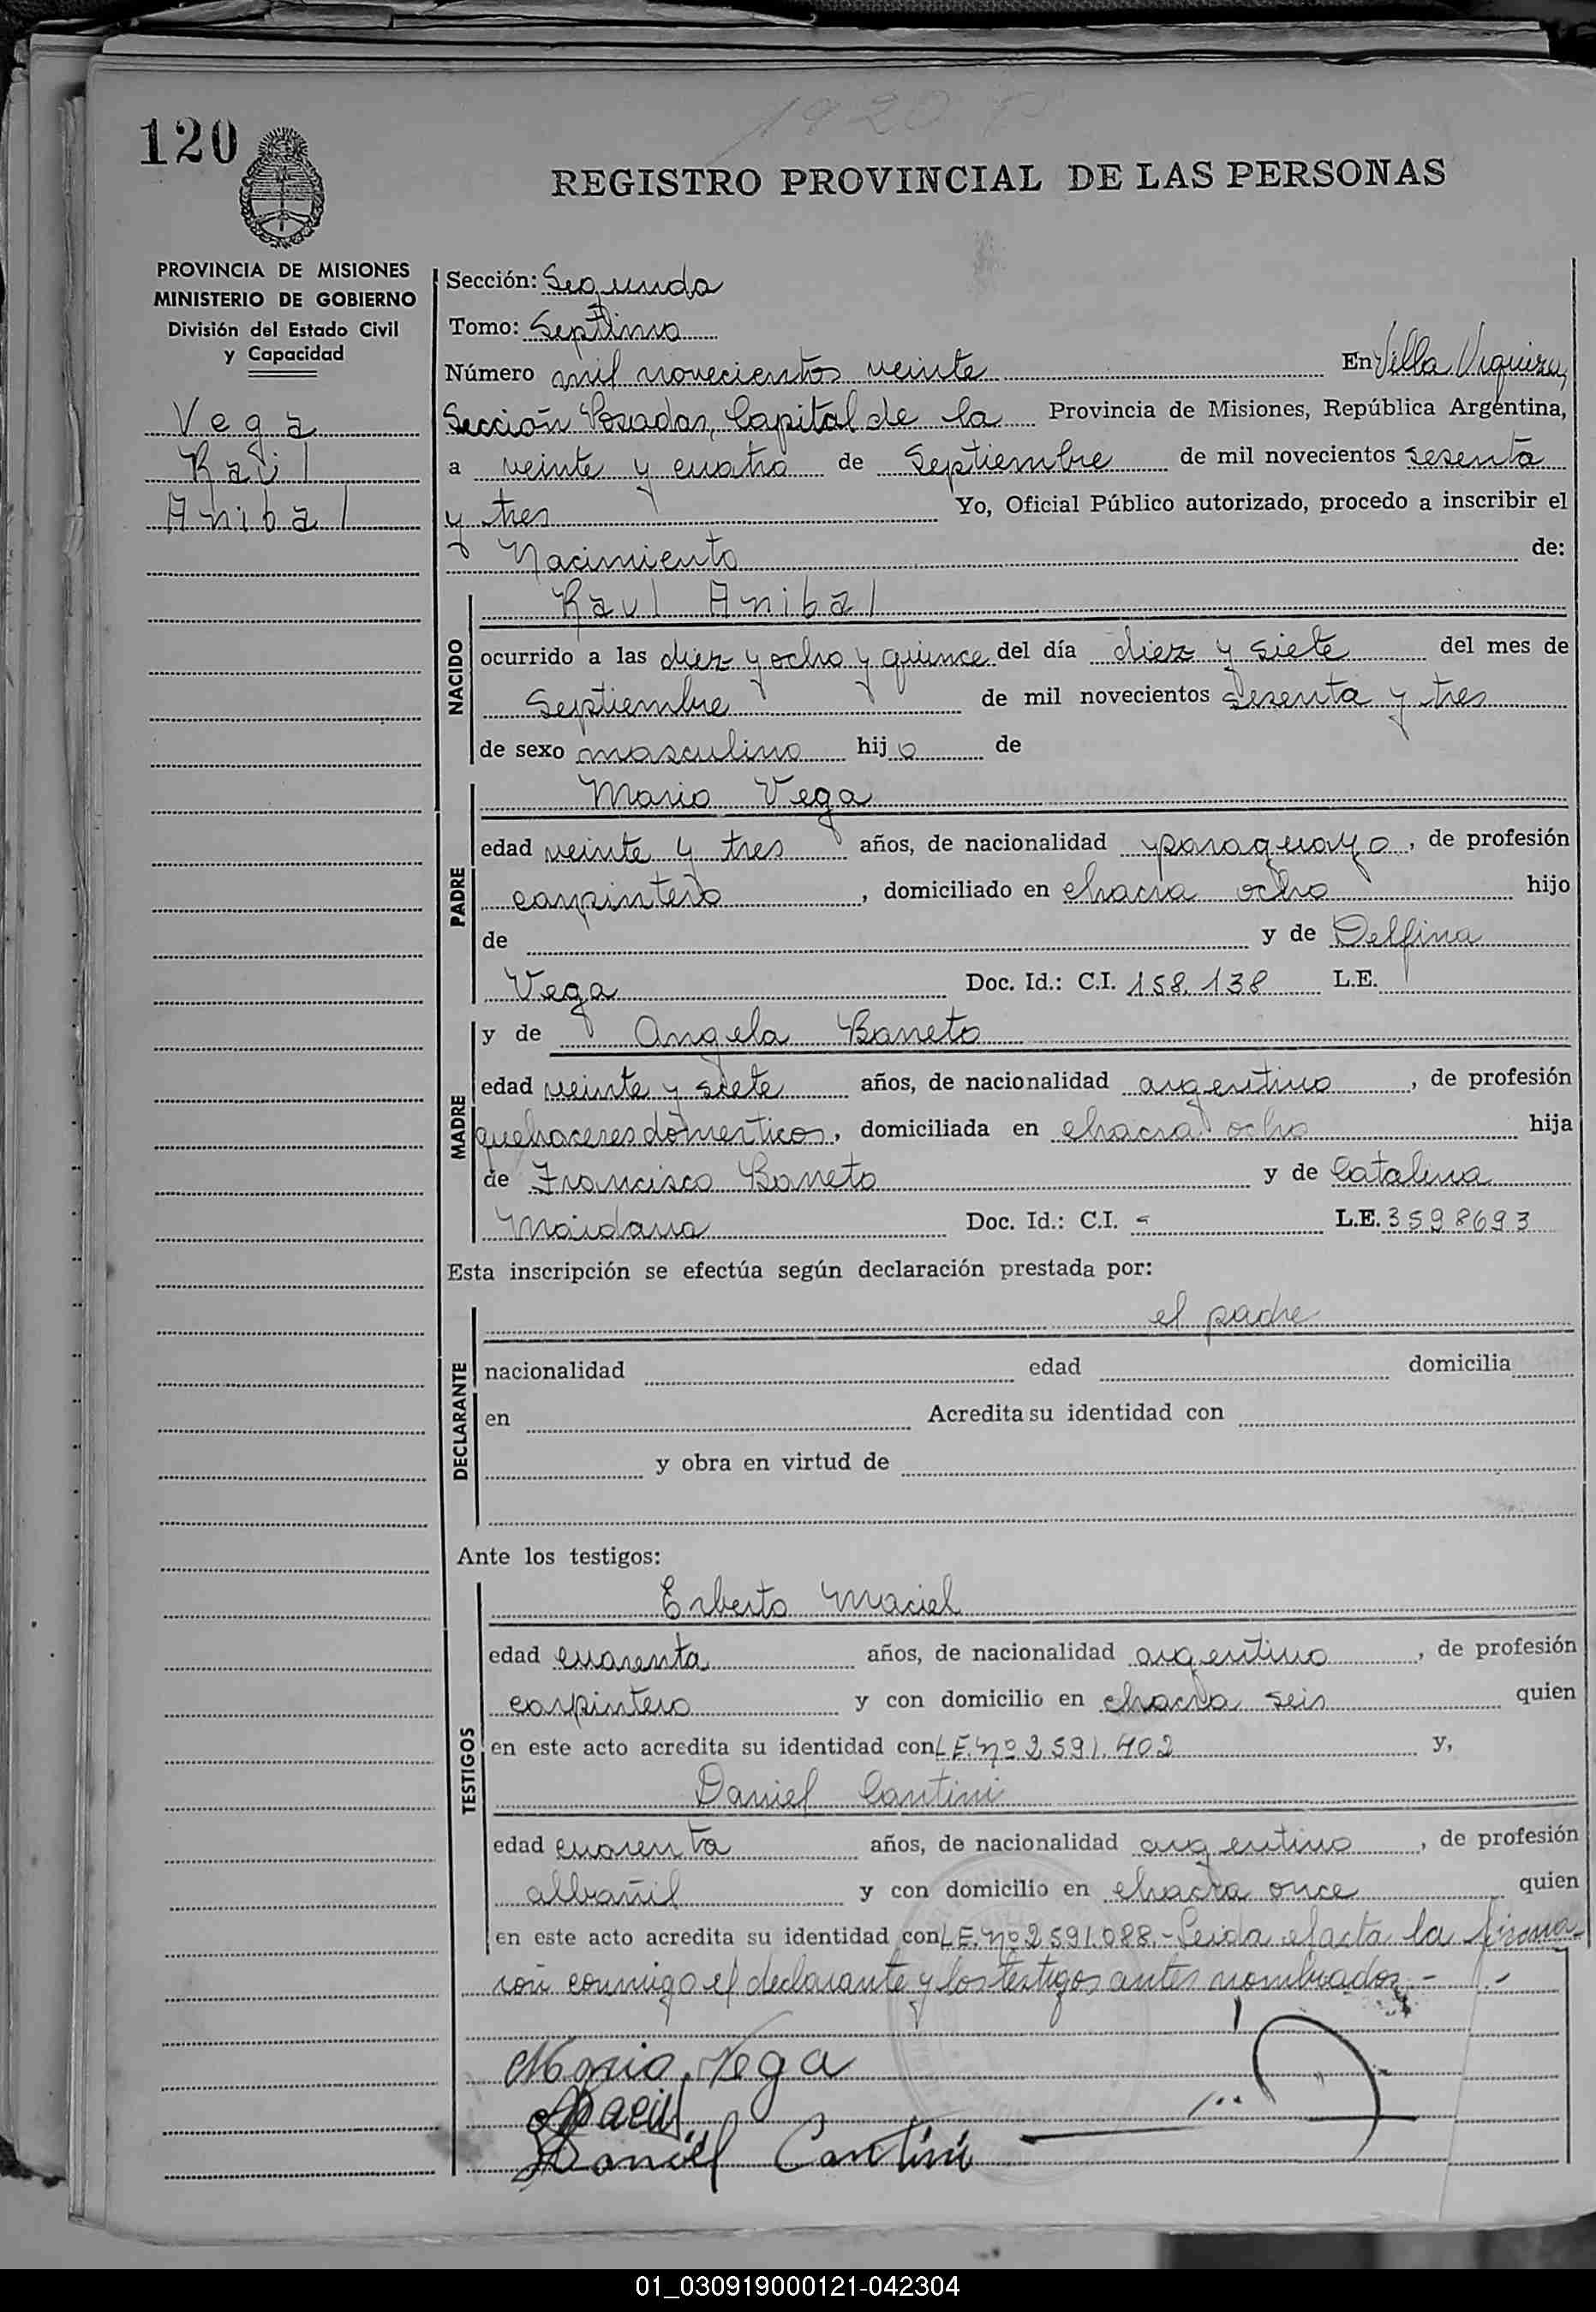 1920 P
120
REGISTRO PROVINCIAL DE LAS PERSONAS
PROVINCIA DE MISIONES
MINISTERIO DE GOBIERNO
División del Estado Civil
y Capacidad
Vega
Raúl
Anibal
Sección: Segunda
Tomo: Septimo
Número mil novecientos veinte En Villa Urquiza,
Sección Posadas, Capital de la Provincia de Misiones, República Argentina,
a veinte y cuatro de Septiembre de mil novecientos sesenta
y tres Yo, Oficial Público autorizado, procedo a inscribir el
Nacimiento de:
NACIDO
Raul Anibal
ocurrido a las diez y ocho y quince del día diez y siete del mes de
Septiembre de mil novecientos sesenta y tres
de sexo masculino hijo de
PADRE
Mario Vega
edad veinte y tres años, de nacionalidad paraguayo, de profesión
carpintero, domiciliado en chacra ocho hijo
de y de Delfina
Vega Doc. Id.: C.I. 158.138 L.E.
MADRE
y de Angela Barreto
edad veinte y siete años, de nacionalidad argentina, de profesión
quehaceres domesticos, domiciliada en chacra ocho hija
de Francisco Barreto y de Catalina
Maidana Doc. Id.: C.I. - L.E. 3598693
Esta inscripción se efectúa según declaración prestada por:
DECLARANTE
el padre
nacionalidad edad domicilia
en Acredita su identidad con
y obra en virtud de
Ante los testigos:
TESTIGOS
Erberto Maciel
edad cuarenta años, de nacionalidad argentino, de profesión
carpintero y con domicilio en chacra seis quien
en este acto acredita su identidad con L.E. nº 2.591.402 y,
Daniel Cantini
edad cuarenta años, de nacionalidad argentino, de profesión
albañil y con domicilio en chacra once quien
en este acto acredita su identidad con L.E. nº 2.591.088.- Leida el acta la firma-
ron conmigo el declarante y los testigos antes nombrados.-
Mario Vega
Maciel
Daniel Cantini
01_030919000121-042304